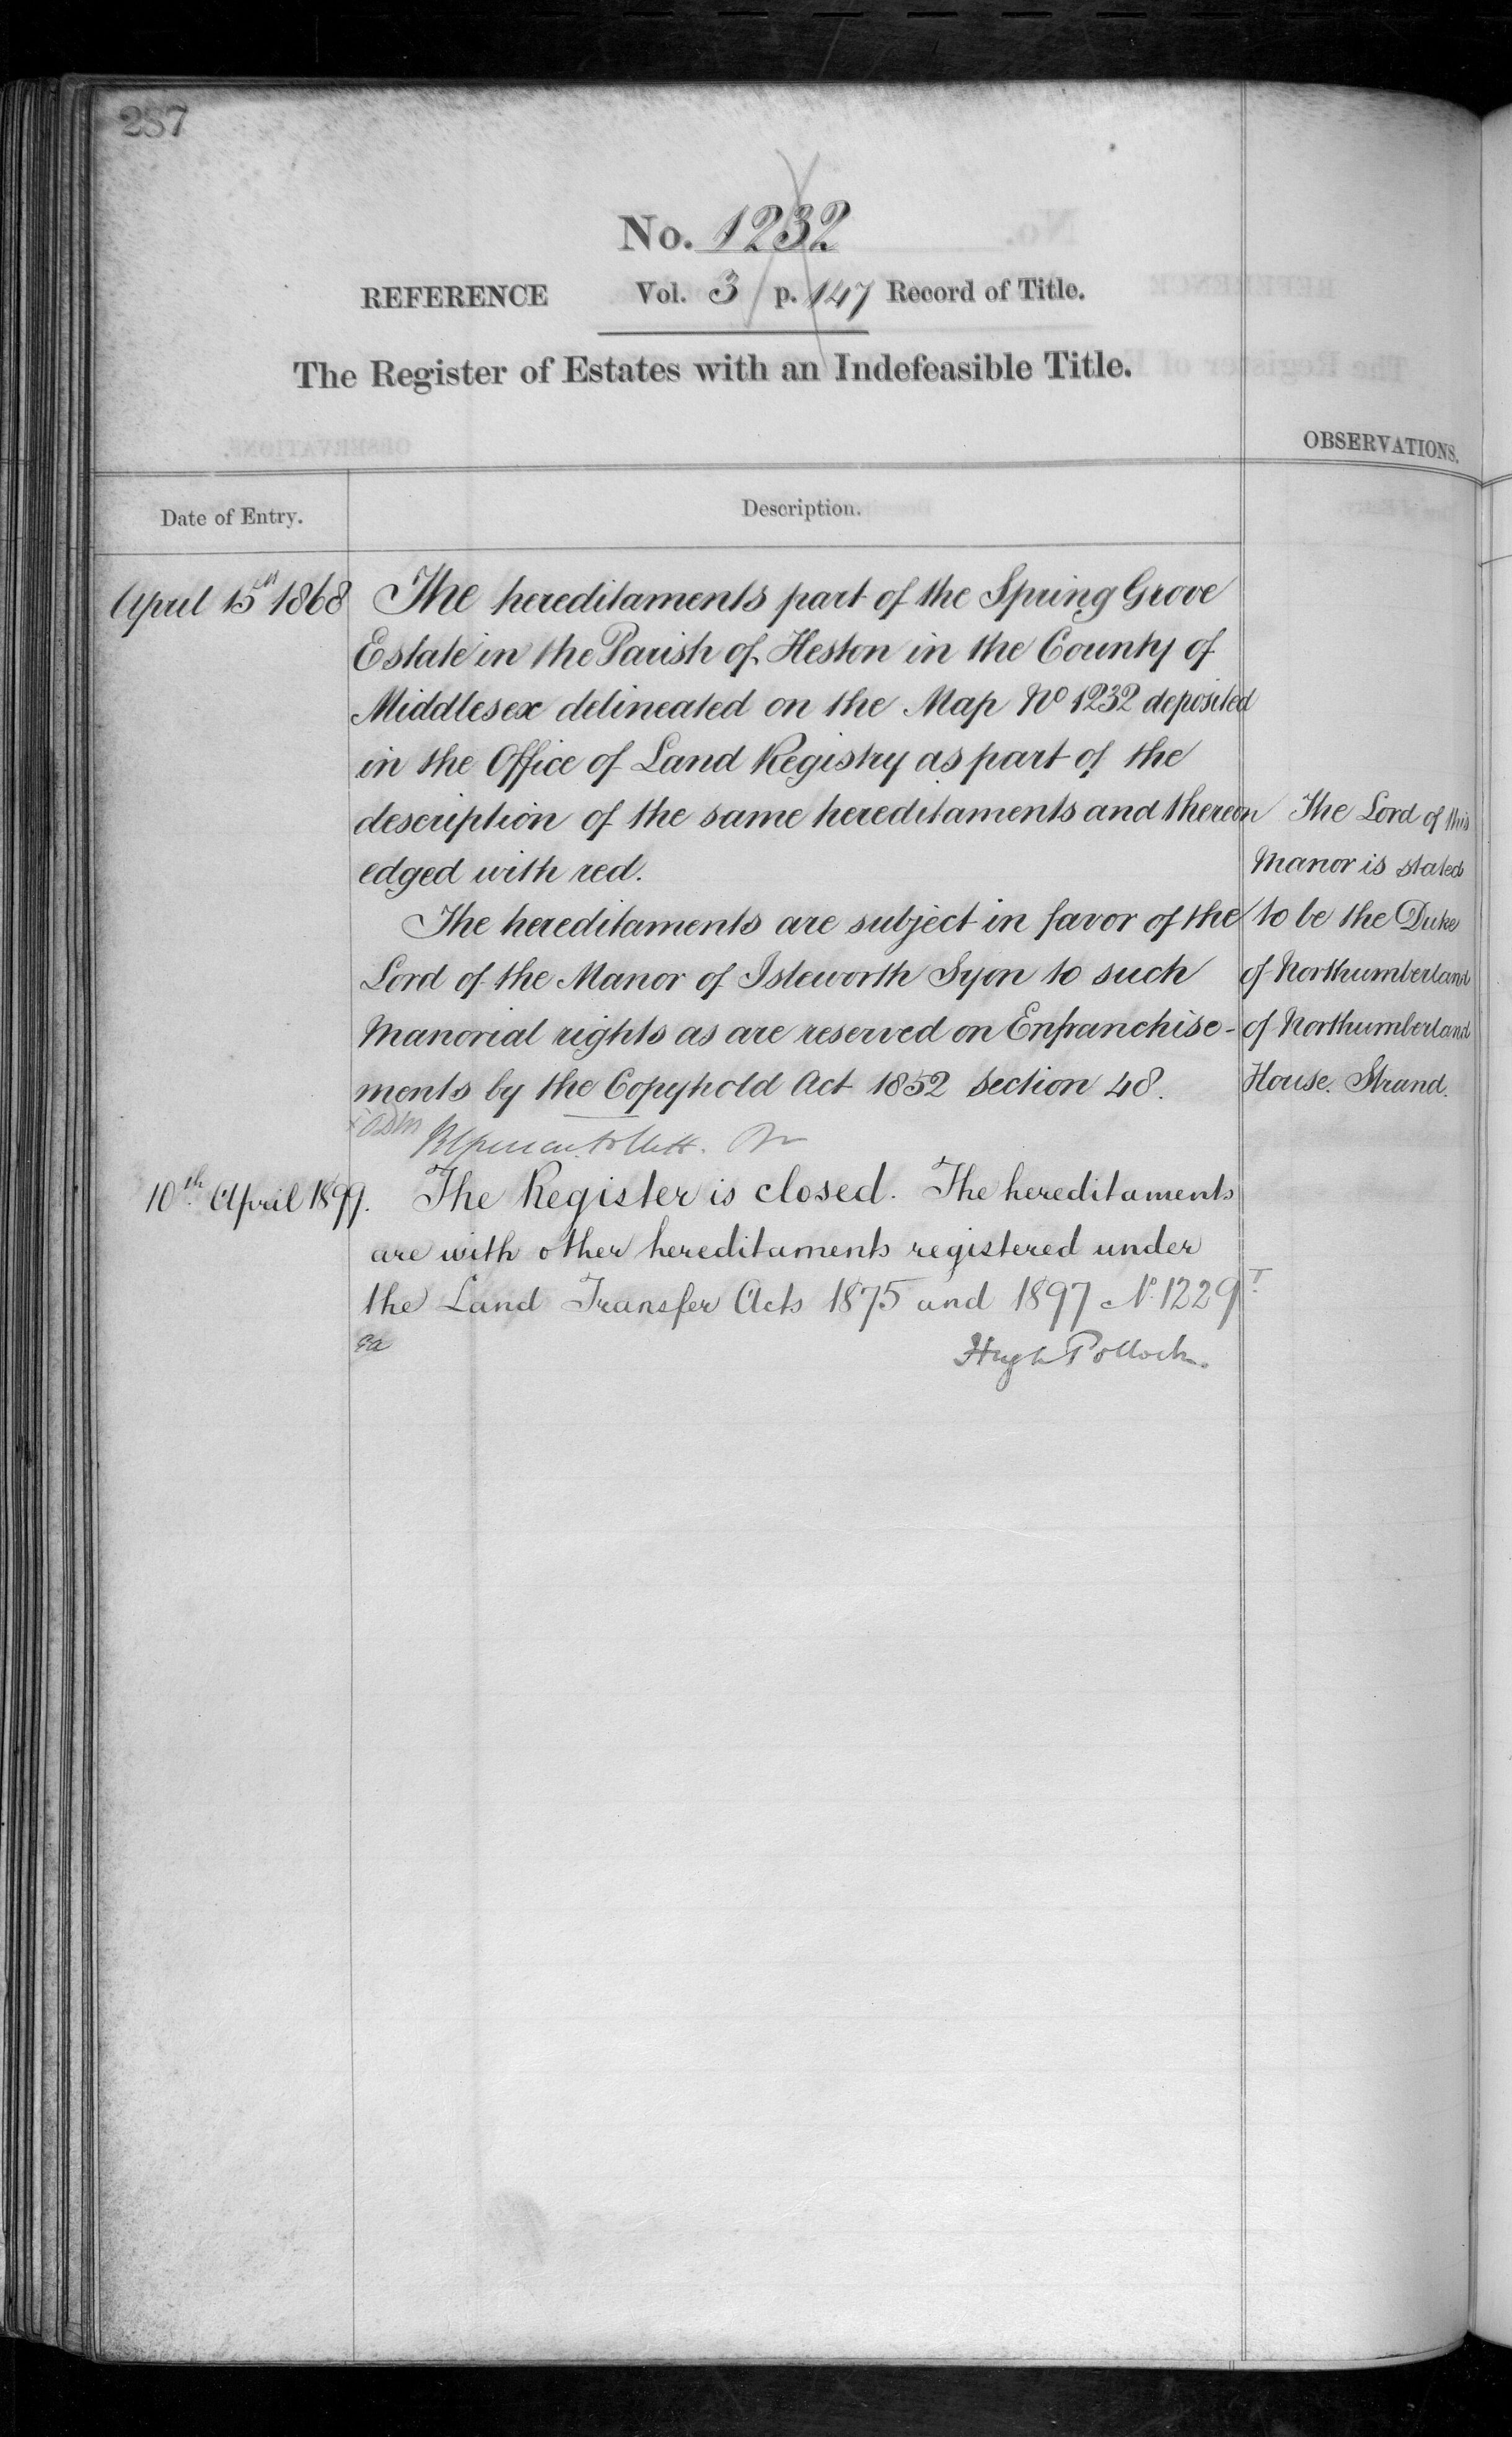 287
No. 1232
REFERENCE Vol. 3 p. 147 Record of Title.
The Register of Estates with an Indefeasible Title.
OBSERVATIONS.
Date of Entry.
Description.
April 15th 1868
The hereditaments part of the Spring Grove
Estate in the Parish of Heston in the County of
Middlesex delineated on the Map No 1232 deposited
in the Office of Land Registry as part of the
description of the same hereditaments and thereon
edged with red.
The hereditaments are subject in favor of the
Lord of the Manor of Isleworth Syon to such
Manorial rights as are reserved on Enfranchise-
ments by the Copyhold Act 1852 section 48.
The Lord of this
Manor is stated
to be the Duke
of Northumberland
of Northumberland
House. Strand.
10th April 1899.
The Register is closed. The hereditaments
are with other hereditaments registered under
the Land Transfer Acts 1875 and 1897 No. 1229
Hugh Pollock.